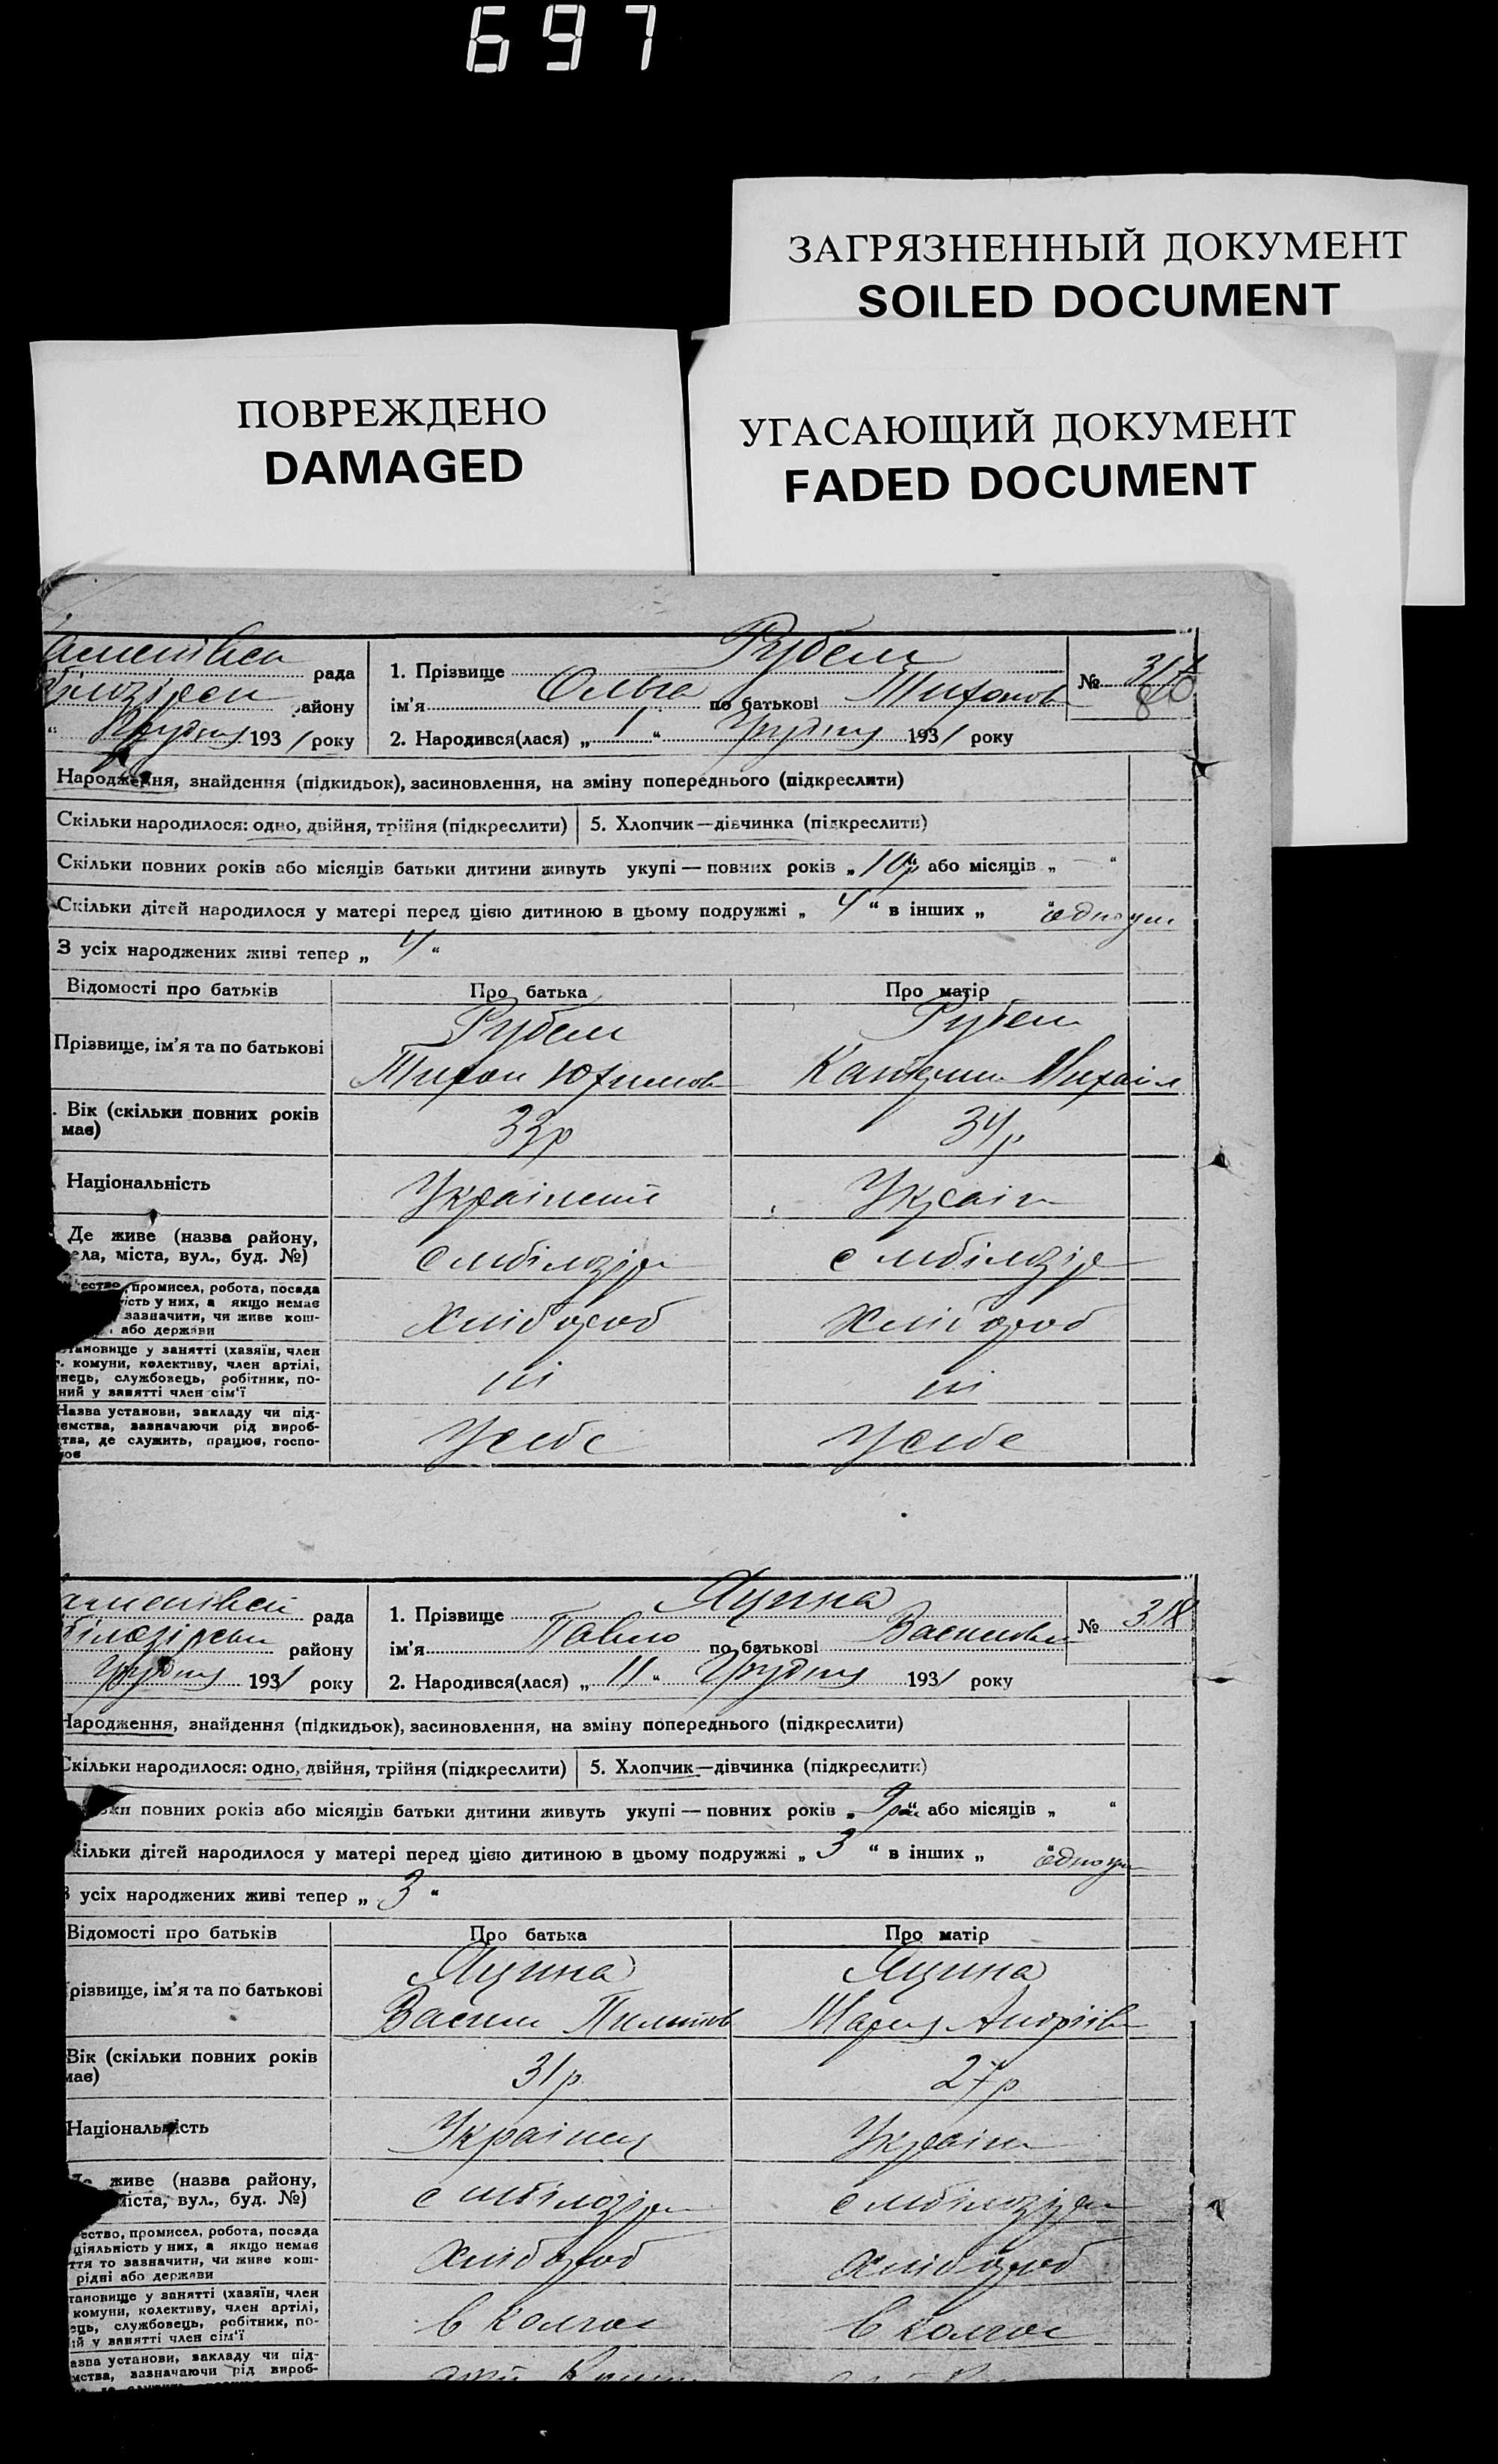 697
ЗАГРЯЗНЕННЫЙ ДОКУМЕНТ
SOILED DOCUMENT
ПОВРЕЖДЕНО
DAMAGED
УГАСАЮЩИЙ ДОКУМЕНТ
FADED DOCUMENT
рада 1. Прізвище №
району ім'я Ольга по батькові Тихонов
Грудня 1931 року 2. Народився(лася) „ 1 “ Грудня 1931 року
Народження, знайдення (підкидьок), засиновлення, на зміну попереднього (підкреслити)
Скільки народилося: одно, двійня, трійня (підкреслити) 5. Хлопчик—дівчинка (підкреслити)
Скільки повних років або місяців батьки дитини живуть укупі — повних років „ 10р “ або місяців „ — “
Скільки дітей народилося у матері перед цією дитиною в цьому подружжі „ 4 “ в інших „ “
З усіх народжених живі тепер „ 4 “
Відомості про батьків Про батька Про матір
Прізвище, ім'я та по батькові
Тихон Юхимов Михаіл
. Вік (скільки повних років 33р 34р
має)
Національність Українец Україн
Де живе (назва району,
ела, міста, вул., буд. №)
ество, промисел, робота, посада
ість у них, а якщо немає Хлібороб Хлібороб
зазначити, чи живе кош-
або держави
тановище у занятті (хазяїн, член
г. комуни, колективу, член артілі,
нець, службовець, робітник, по-
ний у занятті член сім'ї
Назва установи, закладу чи під-
ємства, зазначаючи рід вироб-
тва, де служить, працює, госпо- У себе У себе
ює
рада 1. Прізвище Яцина № 318
району ім'я Павло по батькові Васильов
Грудня 1931 року 2. Народився(лася) „ 11 “ Грудня 1931 року
Народження, знайдення (підкидьок), засиновлення, на зміну попереднього (підкреслити)
Скільки народилося: одно, двійня, трійня (підкреслити) 5. Хлопчик—дівчинка (підкреслити)
ьки повних років або місяців батьки дитини живуть укупі — повних років „ 9р “ або місяців „ “
кільки дітей народилося у матері перед цією дитиною в цьому подружжі „ 3 “ в інших „ “
З усіх народжених живі тепер „ 3 “
Відомості про батьків Про батька Про матір
Яцина Яцина
різвище, ім'я та по батькові
Васил Пилипов Мария Андріів
Вік (скільки повних років 31р 27р
має)
Національність Українец Україн
живе (назва району,
міста, вул., буд. №)
ество, промисел, робота, посада
ціяльність у них, а якщо немає Хлібороб Хлібороб
ття то зазначити, чи живе кош-
рідні або держави
тановище у занятті (хазяїн, член
комуни, колективу, член артілі, в колгос в колгос
ець, службовець, робітник, по-
ій у занятті член сім'ї
азва установи, закладу чи під-
мства, зазначаючи рід вироб-